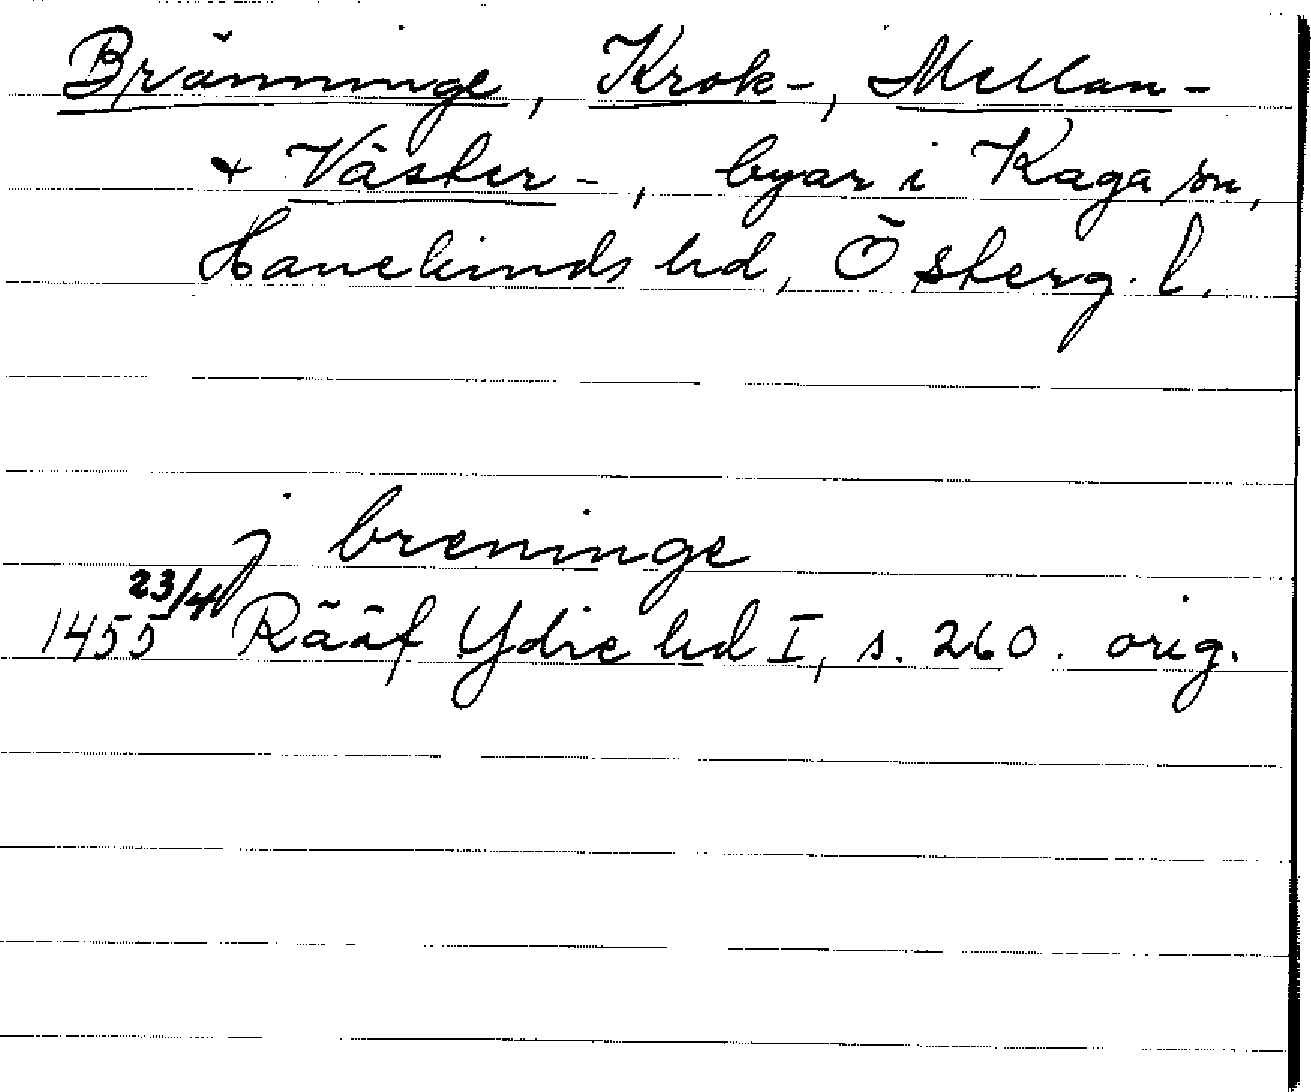 Bränninge, Krok-, Mellan-
& Väster-, byar i Kaga sn,
Hanekinds hd, Österg. l.
j breninge
1455 23/4 Rääf Ydre hd I, s. 260. orig.